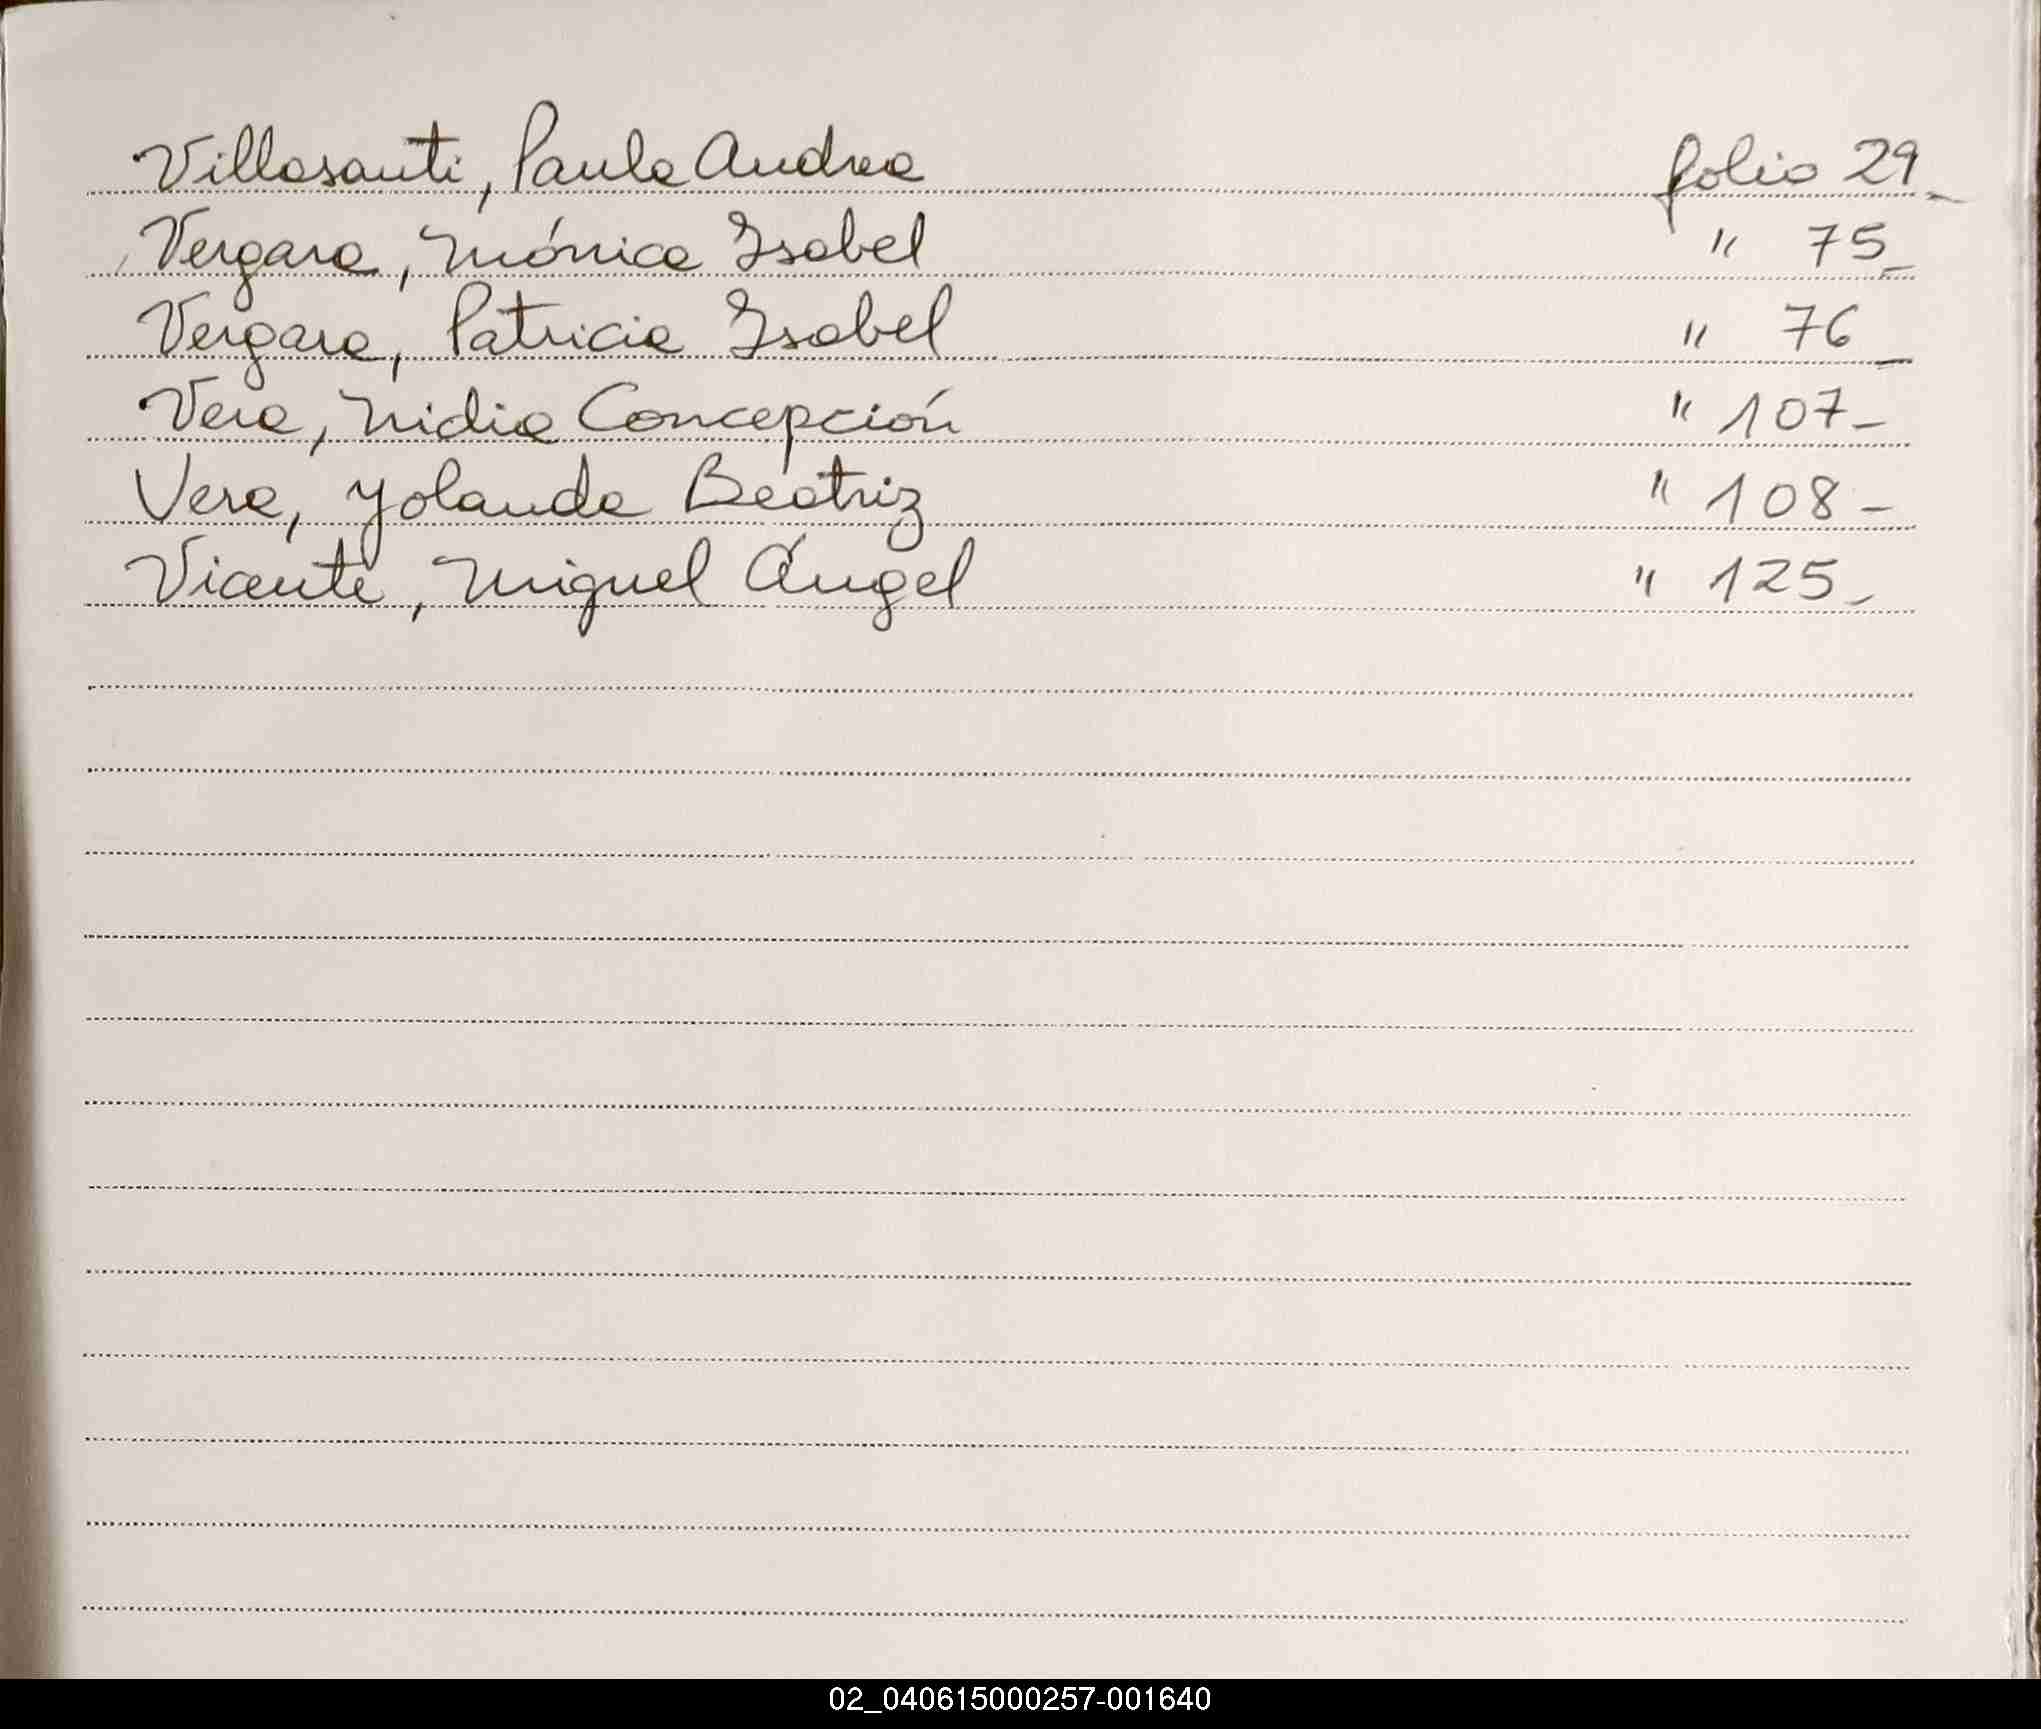 Villasanti, Paula Andrea folio 29_
Vergara, Mónica Isabel " 75_
Vergara, Patricia Isabel " 76_
Vera, Nidia Concepción " 107_
Vera, Yolanda Beatriz " 108_
Vicente, Miguel Ángel " 125_
02_040615000257-001640